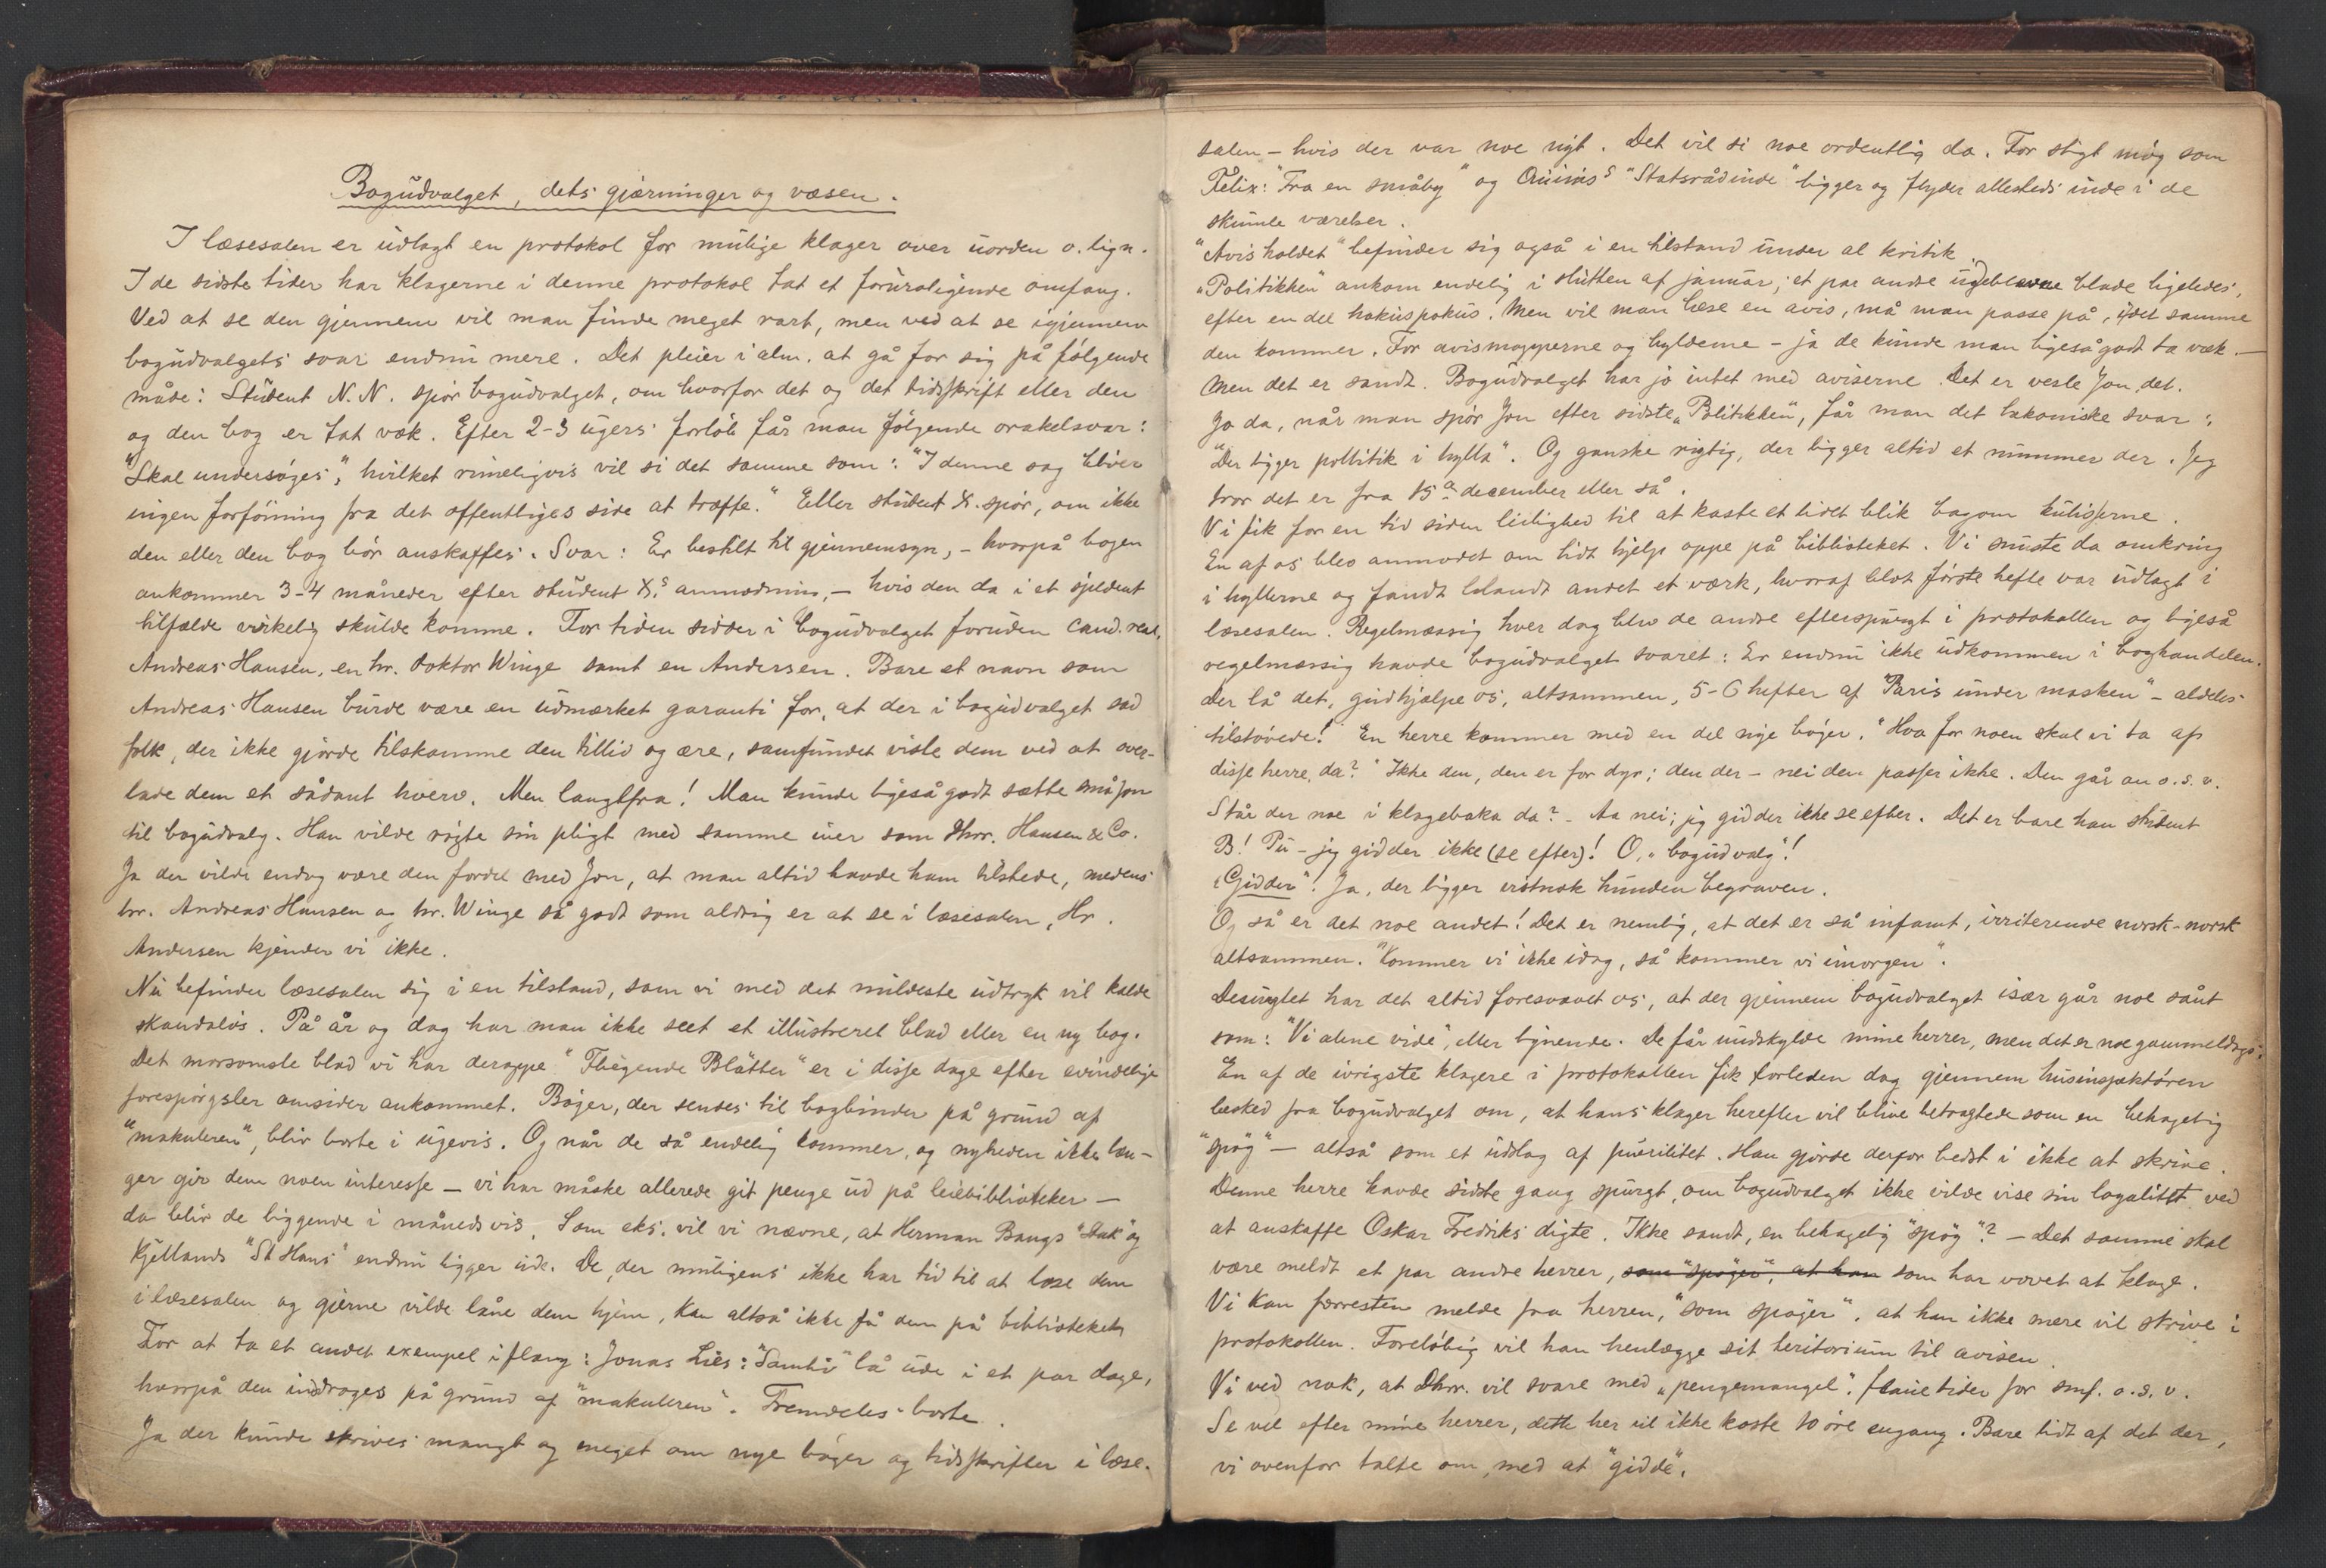 Bogudvalget, dets gjærninger og væsen.
I læsesalen er udlagt en protokol for mulige klager over uorden o. lign.
I de sidste tider har klagerne i denne protokol tat et foruroligende omfang.
Ved at se den gjennem vil man finde meget rart, men ved at se igjennem
bogudvalgets svar endnu mere. Det pleier i alm. at gå for sig på følgende
måde: Student N. N. spør bogudvalget, om hvorfor det og det tidsskrift eller den
og den bog er tat væk. Efter 2-3 ugers forløb får man følgende orakelsvar:
"Skal undersøges", hvilket rimeligvis vil si det samme som: "I denne sag bliver
ingen forføining fra det offentliges side at træffe." Eller student X. spør, om ikke
den eller den bog bør anskaffes. Svar: Er bestilt til gjennemsyn, - hvorpå bogen
ankommer 3-4 måneder efter student X.s anmodning, - hvis den da i et sjeldent
tilfælde virkelig skulde komme. For tiden sidder i bogudvalget foruden cand. real.
Andreas Hansen, en hr. doktor Winge samt en Andersen. Bare et navn som
Andreas Hansen burde være en udmærket garanti for, at der i bogudvalget sad
folk, der ikke gjorde tilskamme den tillid og ære, samfundet viste dem ved at over-
lade dem et sådant hverv. Men langtfra! Man kunde ligeså godt sætte småjon
til bogudvalg. Han vilde røgte sin pligt med samme iver som Dhrr. Hansen & Co.
Ja der vilde endog være den fordel med Jon, at man altid havde ham tilstede, medens
hr. Andreas Hansen og hr. Winge så godt som aldrig er at se i læsesalen. Hr.
Andersen kjender vi ikke.
Nu befinder læsesalen sig i en tilstand, som vi med det mildeste udtryk vil kalde
skandaløs. På år og dag har man ikke seet et illustreret blad eller en ny bog.
Det morsomste blad vi har deroppe "Fliegende Blätter" er i disse dage efter evindelige
forespørgsler omsider ankommet. Bøger, der sendes til bogbinder på grund af
"makuleren", blir borte i ugevis. Og når de så endelig kommer, og nyheden ikke læn-
ger gir dem noen interesse - vi har måske allerede git penge ud på leiebiblioteker -
da blir de liggende i månedsvis. Som eks. vil vi nævne, at Herman Bangs "Stuk" og
Kjellands "St Hans" endnu ligger ude. De, der muligens ikke har tid til at læse dem
i læsesalen og gjerne vilde låne dem hjem, kan altså ikke få dem på biblioteket.
For at ta et andet exempel i fleng: Jonas Lies: "Samliv" lå ude i et par dage,
hvorpå den inddroges på grund af "makuleren". Fremdeles borte.
Ja der kunde skrives mangt og meget om nye bøger og tidsskrifter i læse-
salen - hvis der var noe nyt. Det vil si noe ordentlig da. For sligt møg som
Felix: "Fra en småby" og "Statsrådinde" ligger og flyder allesteds inde i de
skumle værelser.
"Avisholdet" befinder sig også i en tilstand under al kritik.
"Politikken" ankom endelig i slutten af januar; et par andre blade ligeledes,
efter en del hokuspokus. Men vil man læse en avis, må man passe på, idet samme
den kommer. For avismapperne og hylderne - ja de kunde man ligeså godt ta væk. -
Men det er sandt. Bogudvalget har jo intet med aviserne. Det er vesle Jon, det.
Jo da, når man spør Jon efter sidste "Politikken", får man det lakoniske svar:
"Der ligger pollitik i hylla". Og ganske rigtig, der ligger altid et nummer der. Jeg
tror det er fra 15de december eller så.
Vi fik for en tid siden leilighed til at kaste et lidet blik bagom kulisserne.
En af os blev anmodet om lidt hjelp oppe på biblioteket. Vi snuste da omkring
i hyllerne og fandt blandt andet et værk, hvoraf blot første hefte var udlagt i
læsesalen. Regelmæssig hver dag blev de andre efterspurgt i protokollen og ligeså
regelmæssig havde bogudvalget svaret: Er endnu ikke udkommen i boghandelen.
Der lå det, gudhjælpe os, altsammen, 5-6 hefter af "Paris under masken" - aldeles
tilstøvede! En herre kommer med en del nye bøger. "Hva for noen skal vi ta af
disse herre, da?" Ikke den, den er for dyr; den der - nei den passer ikke. Den går an o. s. v.
Står der noe i klageboka da? - Aa nei; jeg gidder ikke se efter. Det er bare han student
B! Pu - jeg gidder ikke (se efter)! O, "bogudvalg"!
"Gidder". Ja, der ligger vistnok hunden begraven.
Og så er det noe andet! Det er nemlig, at det er så infamt, irriterende norsk-norsk
altsammen. "Kommer vi ikke idag, så kommer vi imorgen".
Desuagtet har det altid foresvævet os, at der gjennem bogudvalget især går noe sånt
som: "Vi alene vide", eller lignende. De får undskylde mine herrer, men det er noe gammeldags.
En af de ivrigste klagere i protokollen fik forleden dag gjennem husinspektøren
besked fra bogudvalget om, at hans klager herefter vil blive betragtede som en behagelig
"spøg" - altså som et udslag af puerilitet. Han gjorde derfor bedst i ikke at skrive.
Denne herre havde sidste gang spurgt, om bogudvalget ikke vilde vise sin loyalitet ved
at anskaffe Oskar Fredriks digte. Ikke sandt, en behagelig "spøg"? - Det samme skal
være meldt et par andre herrer, som "spøger", at han som har vovet at klage.
Vi kan forresten melde fra herren, "som spøger", at han ikke mere vil skrive i
protokollen. Foreløbig vil han henlægge sit teritorium til avisen.
Vi ved nok, at Dhrr. vil svare med "pengemangel", flaue tider for smf. o. s. v.
Se vel efter mine herrer, dette her vil ikke koste 10 øre engang. Bare lidt af det der,
vi ovenfor talte om, med at "gidde".